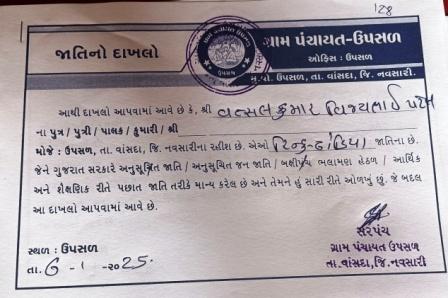 128
જાતિનો દાખલો
ગ્રામ પંચાયત-ઉપસળ
ઓફિસ : ઉપસળ
મુ.પો. ઉપસળ, તા. વાંસદા, જિ. નવસારી.
આથી દાખલો આપવામાં આવે છે કે, શ્રી વત્સલકુમાર વિજયભાઈ પટેલ
ના પુત્ર / પુત્રી / પાલક / કુમારી / શ્રી
મોજે : ઉપસળ, તા. વાંસદા, જિ. નવસારીના રહીશ છે. એઓ હિન્દુ-ઢોડિયા જાતિના છે.
જેને ગુજરાત સરકારે અનુસૂચિત જાતિ / અનુસૂચિત જન જાતિ / બક્ષીપંચ ભલામણ હેઠળ / આર્થિક
અને શૈક્ષણિક રીતે પછાત જાતિ તરીકે માન્ય કરેલ છે અને તેમને હું સારી રીતે ઓળખું છું. જે બદલ
આ દાખલો આપવામાં આવે છે.
સ્થળ : ઉપસળ
તા. 6-1-2025.
સરપંચ
ગ્રામ પંચાયત ઉપસળ
તા.વાંસદા, જિ.નવસારી